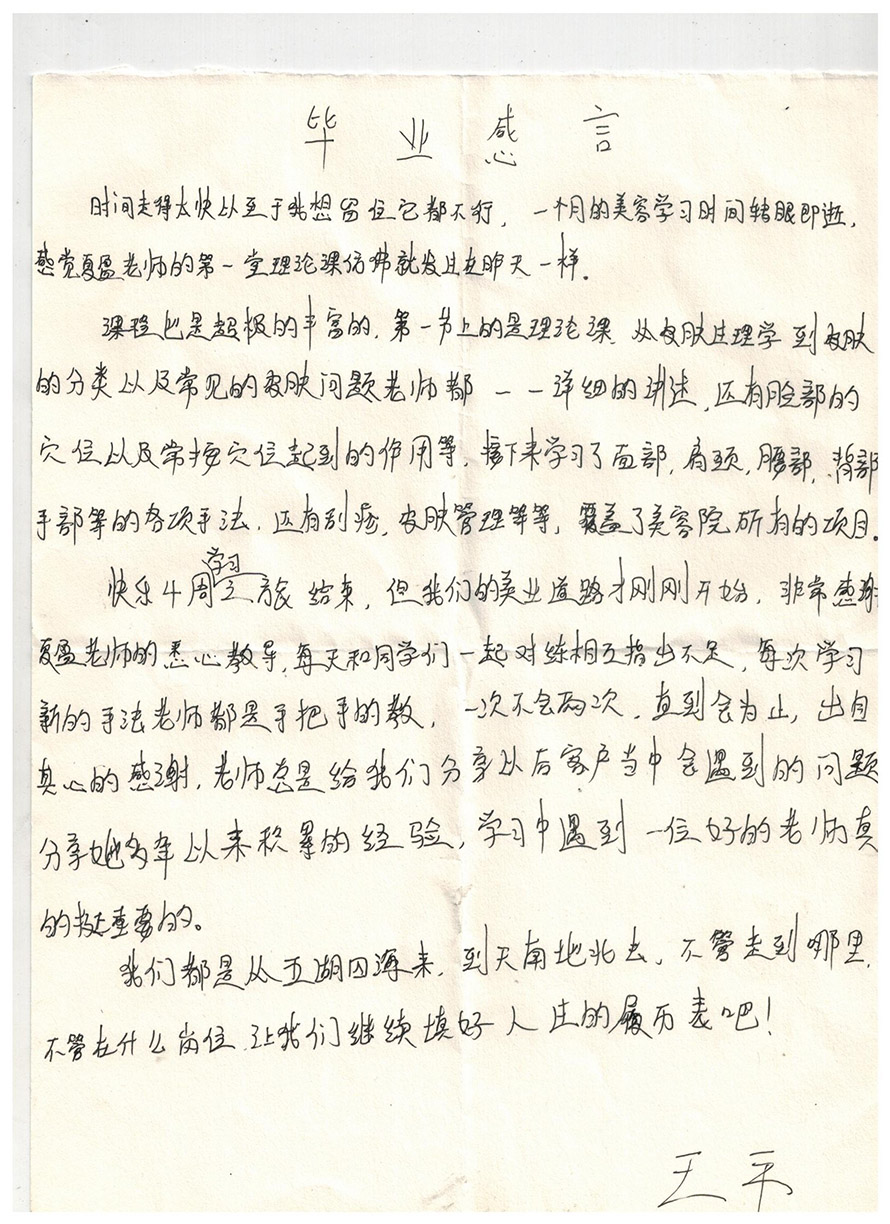 毕业感言
时间走得太快以至于我想留住它都不行，一个月的美容学习时间转眼即逝，
感觉夏盈老师的第一堂理论课仿佛就发生在昨天一样.
课程也是超极的丰富的，第一节上的是理论课，从皮肤生理学到皮肤
的分类以及常见的皮肤问题老师都一一详细的讲述，还有脸部的
穴位以及常按穴位起到的作用等，接下来学习了面部，肩颈，腰部，背部
手部等的各项手法，还有刮痧，皮肤管理等等，覆盖了美容院所有的项目.
快乐4周学习之旅结束，但我们的美业道路才刚刚开始，非常感谢
夏盈老师的悉心教导，每天和同学们一起对练相互指出不足，每次学习
新的手法老师都是手把手的教，一次不会两次，直到会为止，出自
真心的感谢，老师总是给我们分享以后客户当中会遇到的问题
分享她多年以来积累的经验，学习中遇到一位好的老师真
的挺重要的。
我们都是从五湖四海来，到天南地北去，不管走到哪里，
不管在什么岗位，让我们继续填好人生的履历表吧！
王平